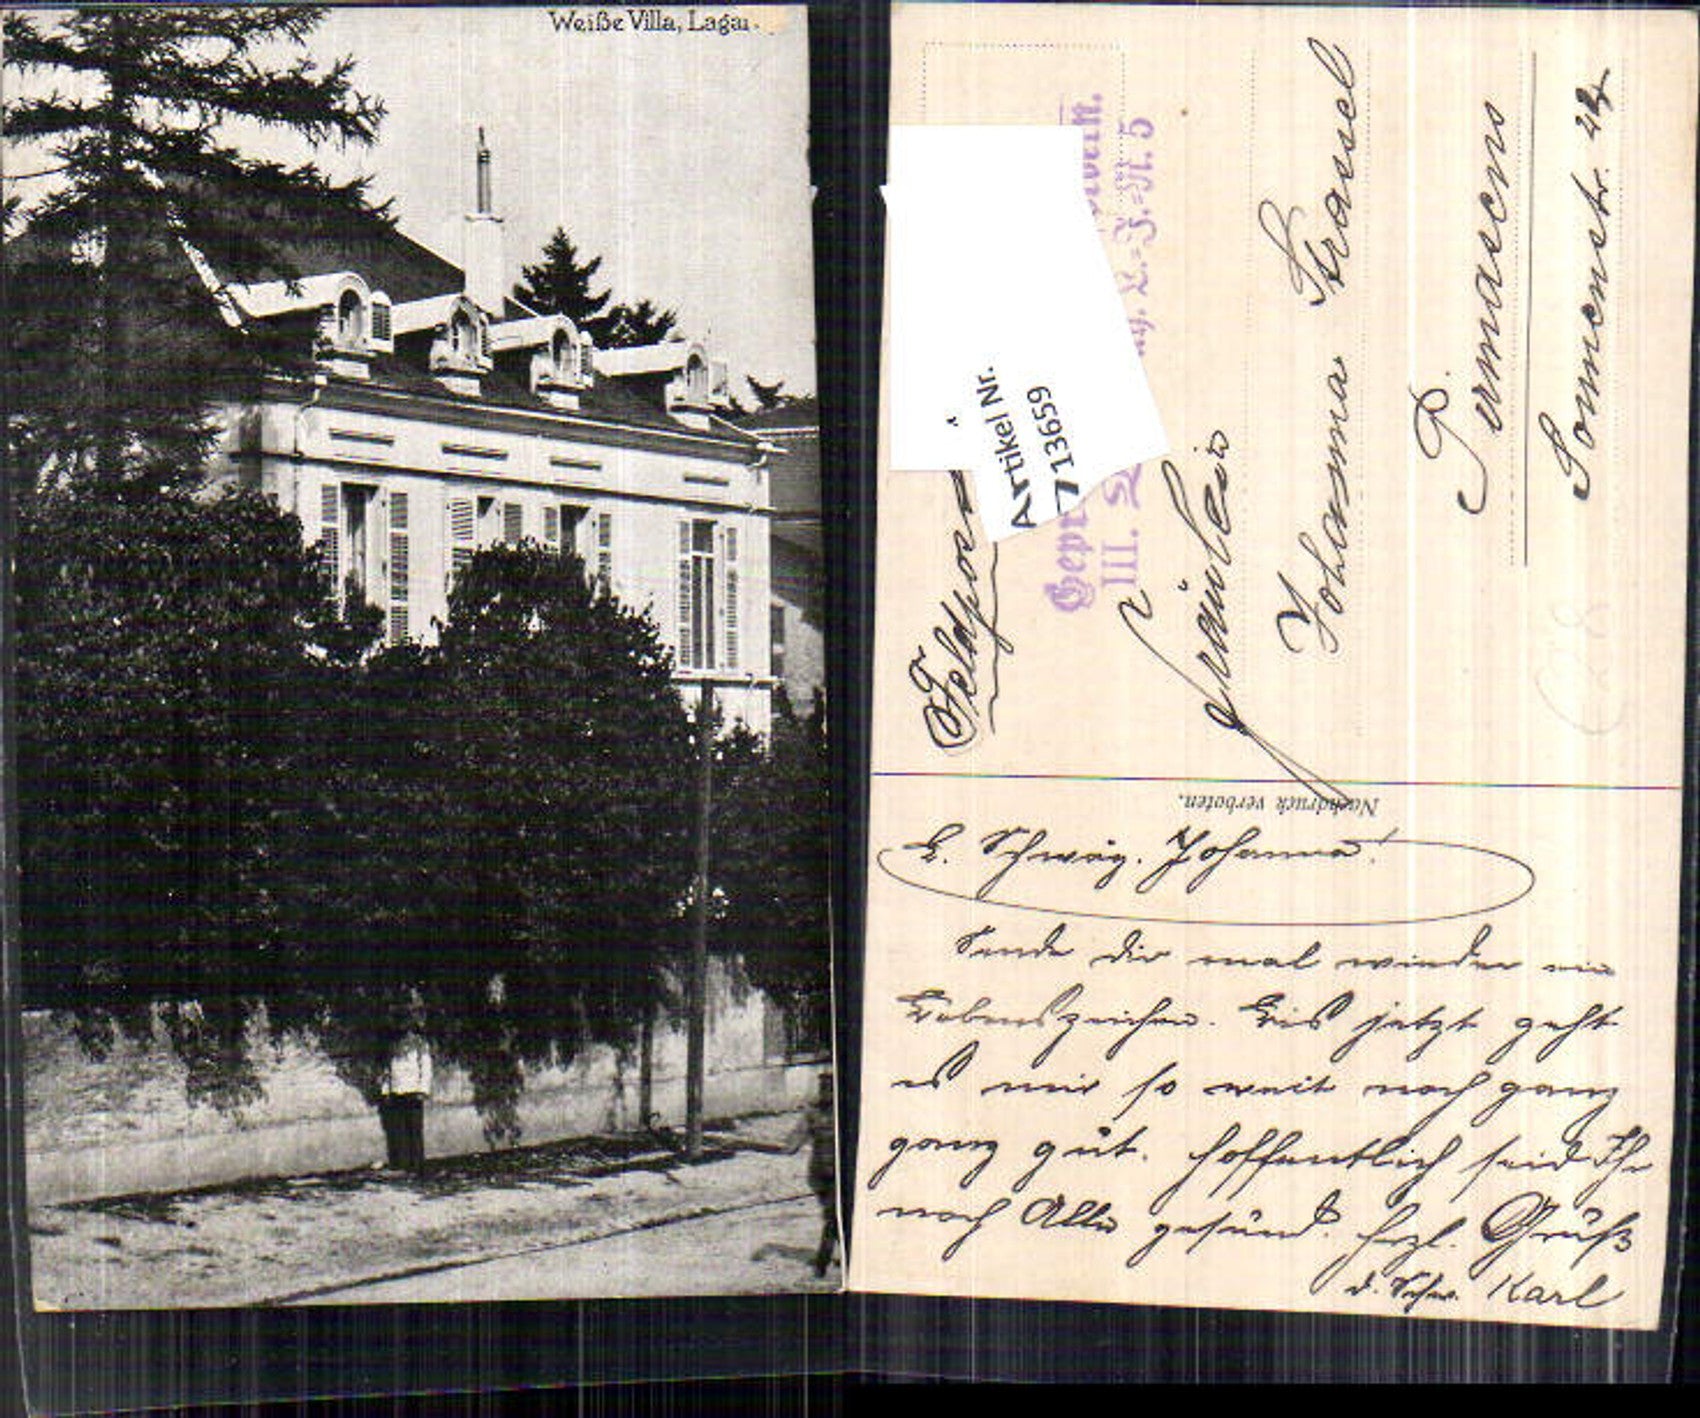 Weiße Villa, Lagar.
Feldpost
Gepr
III. L.=J.=R. 5
Artikel Nr.
713659
Fräulein
Johanna Strassel
Permasens
Sommerstr. 24
Nachdruck verboten.
L. Schwäg. Johanna!
Sende dir mal wieder ein
Lebenszeichen. Bis jetzt geht
es mir so weit noch ganz
ganz gut. Hoffentlich seid Ihr
noch Alle gesund. Herzl. Gruß
d. Schw. Karl